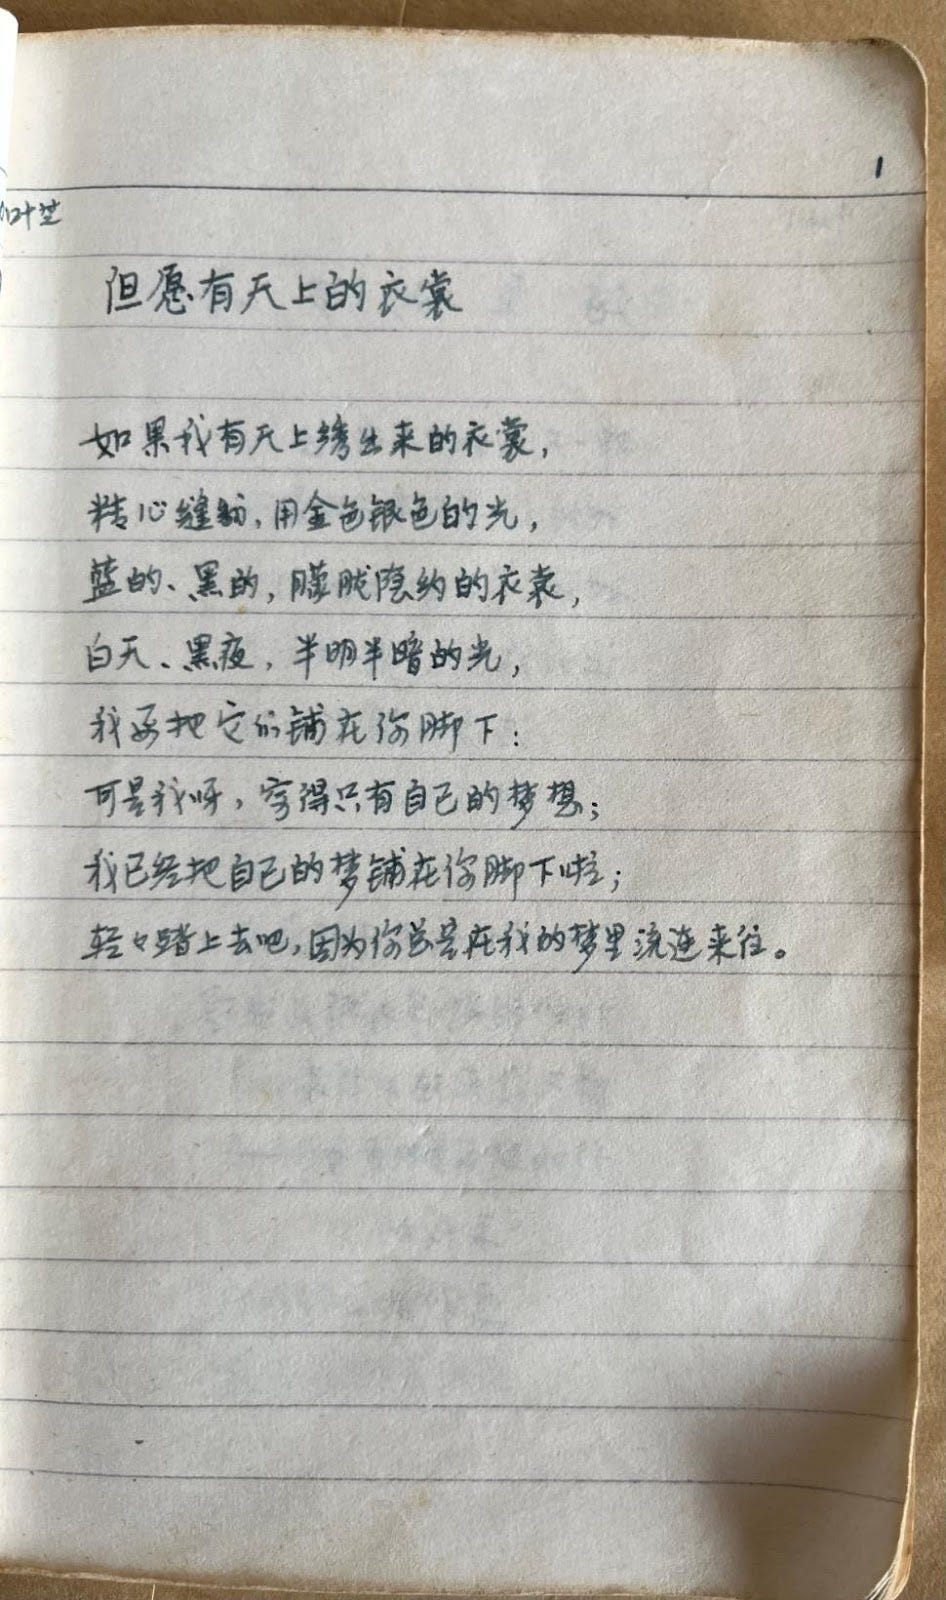 1
叶芝
但愿有天上的衣裳
如果我有天上绣出来的衣裳,
精心缝纫,用金色银色的光,
蓝的、黑的,朦胧隐约的衣裳,
白天、黑夜,半明半暗的光,
我要把它们铺在你脚下:
可是我呀,穷得只有自己的梦想;
我已经把自己的梦铺在你脚下啦;
轻々踏上去吧,因为你总是在我的梦里流连来往。